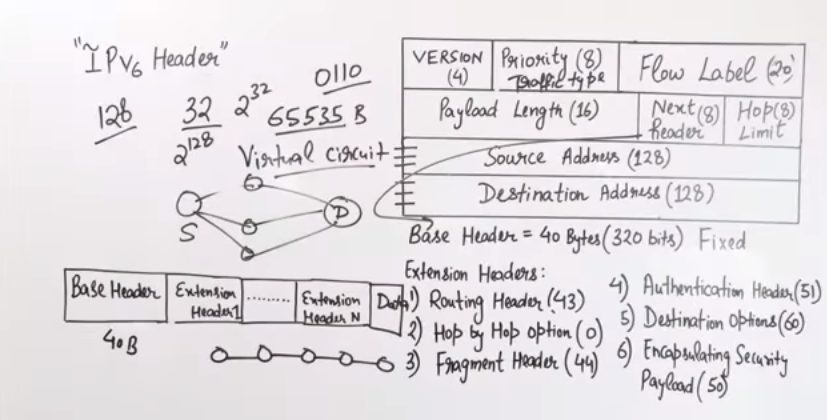 "IPv6 Header"
128
32
2^32
0110
65535 B
2^128
Virtual circuit
S
D
VERSION (4)
Priority (8)
Traffic type
Flow Label (20)
Payload Length (16)
Next (8) Header
Hop (8) Limit
Source Address (128)
Destination Address (128)
Base Header = 40 Bytes (320 bits) Fixed
Base Header
Extension Header 1
........
Extension Header N
Data
40B
Extension Headers:
1) Routing Header (43)
2) Hop by Hop option (0)
3) Fragment Header (44)
4) Authentication Header (51)
5) Destination Options (60)
6) Encapsulating Security
Payload (50)